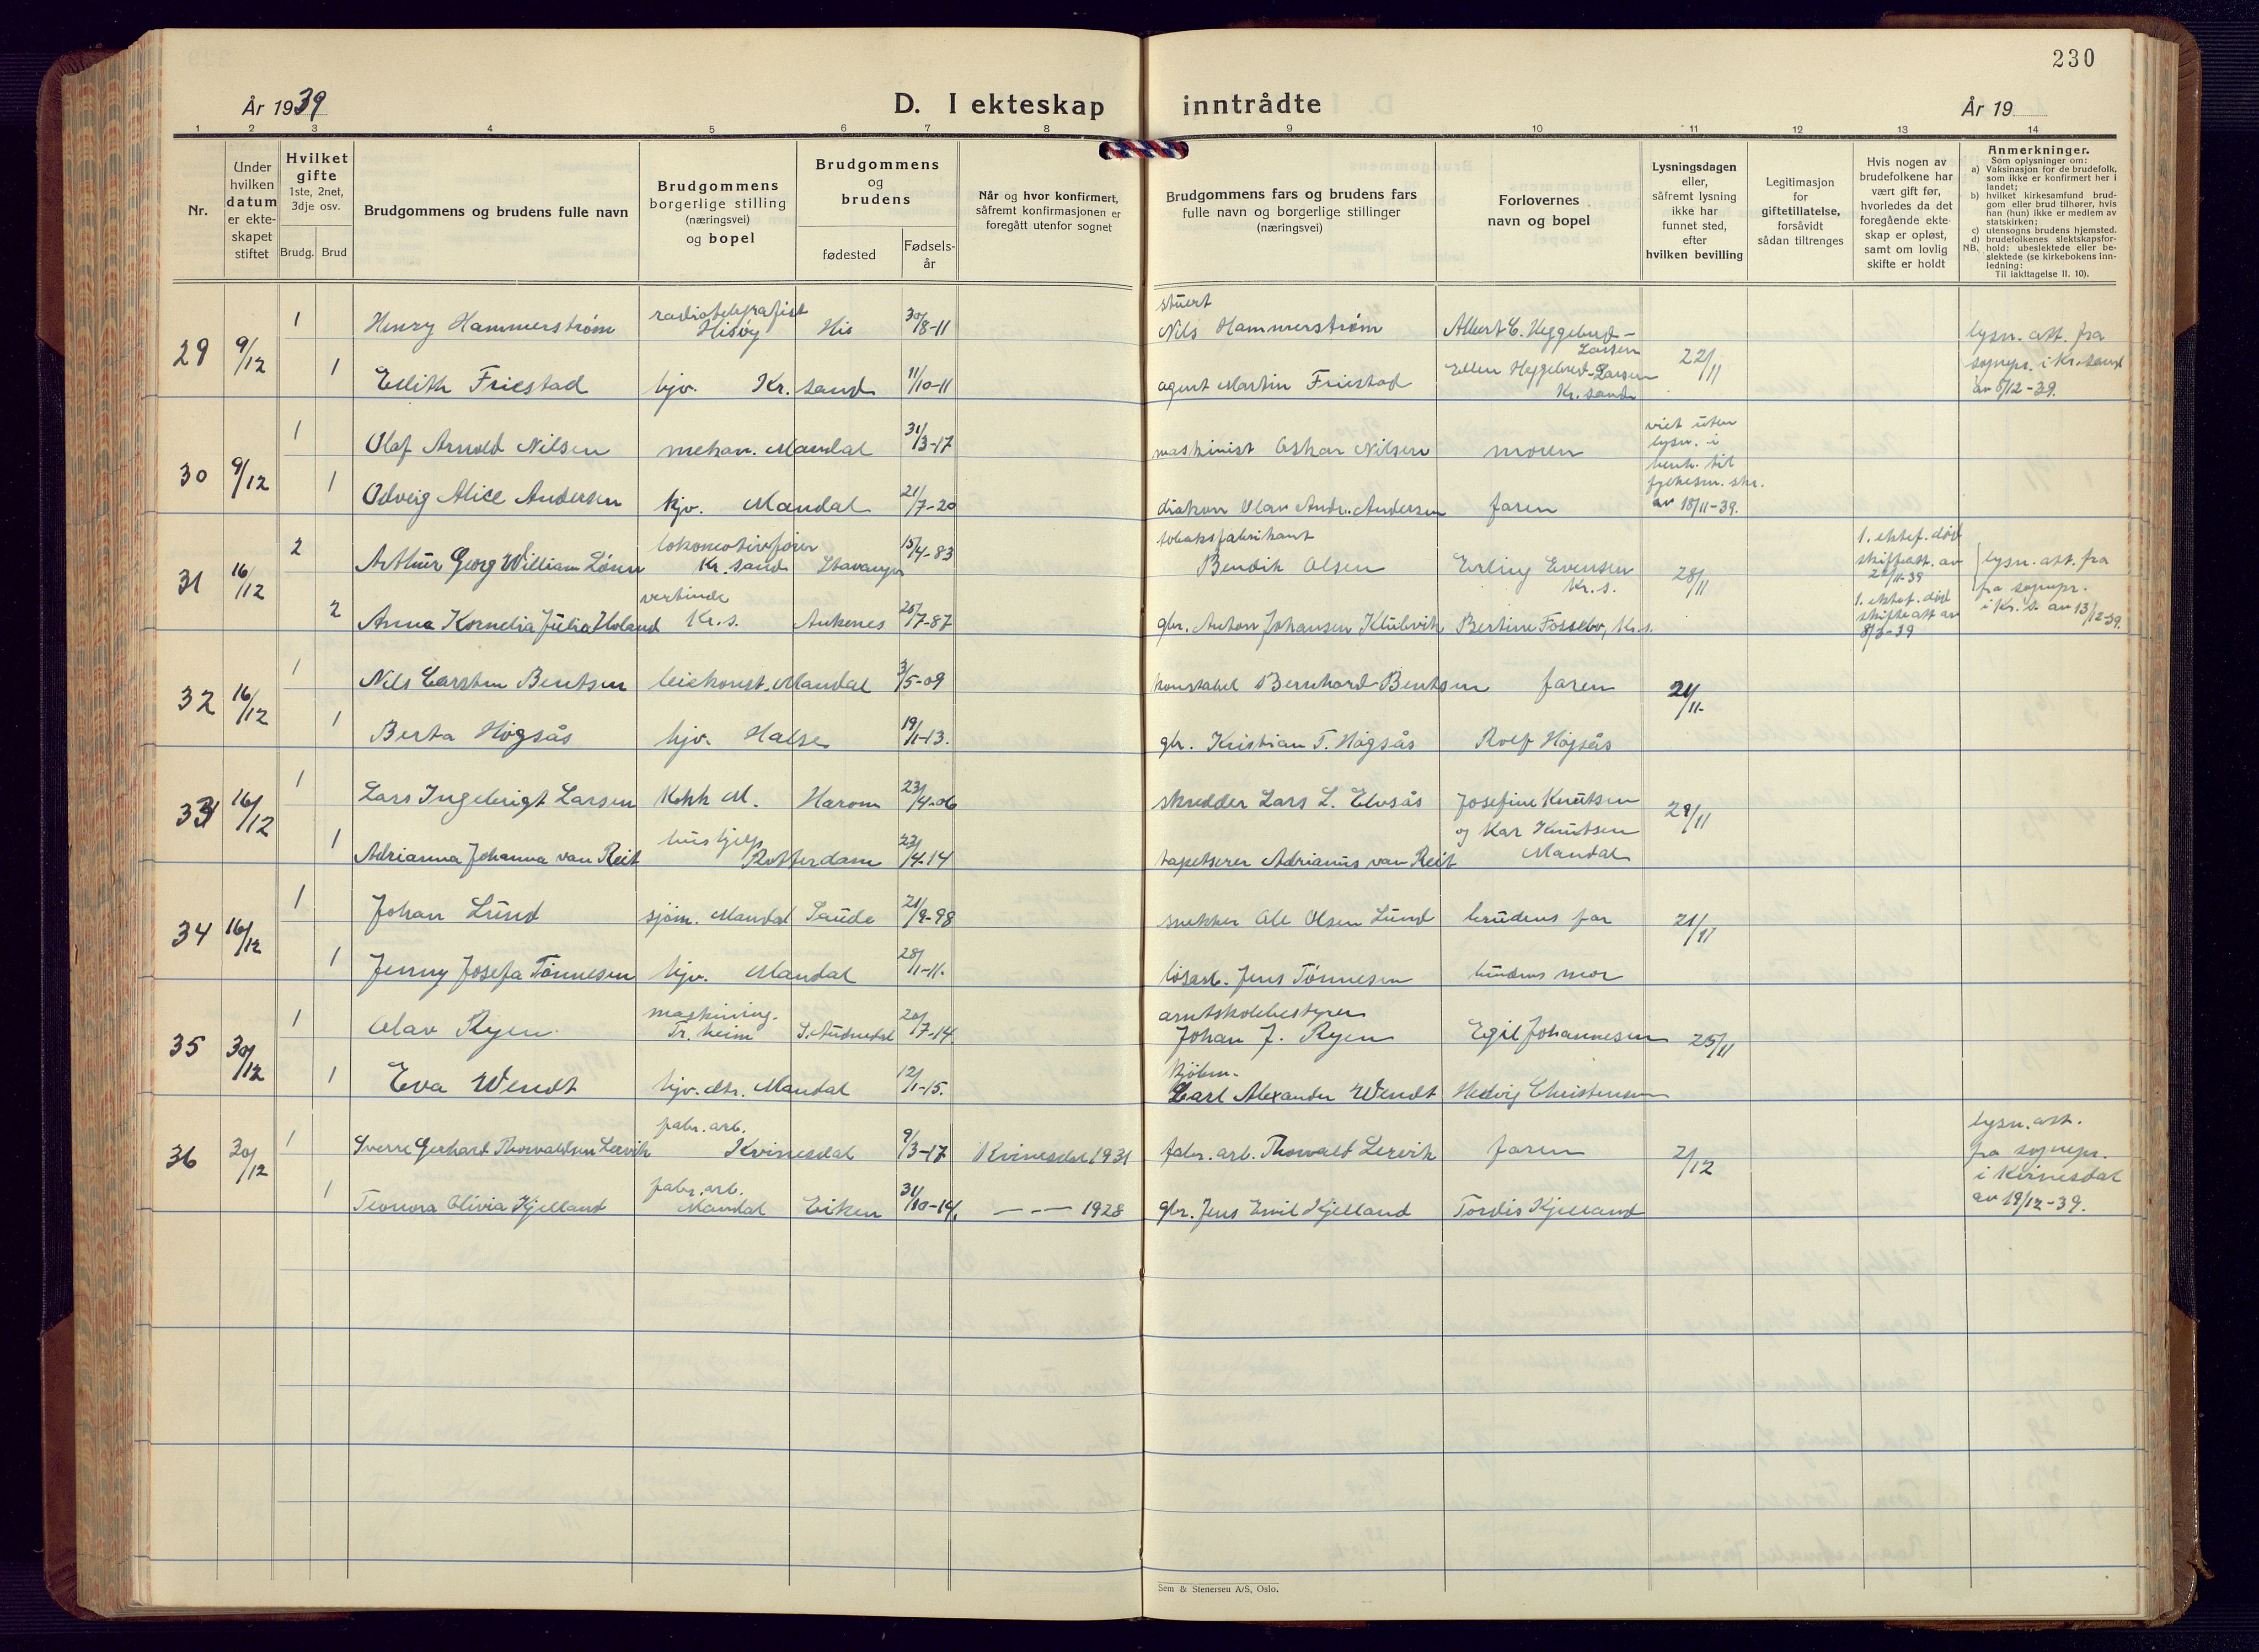 230
År 1939
D. I ekteskap inntrådte
År 19
1 2 3 4 5 6 7 8 9 10 11 12 13 14
Nr.
Under
hvilken
datum
er ekte-
skapet
stiftet
Hvilket
gifte
1ste, 2net,
3dje osv.
Brudg. Brud
Brudgommens og brudens fulle navn
Brudgommens
borgerlige stilling
(næringsvei)
og bopel
Brudgommens
og
brudens
fødested
Fødsels-
år
Når og hvor konfirmert,
såfremt konfirmasjonen er
foregått utenfor sognet
Brudgommens fars og brudens fars
fulle navn og borgerlige stillinger
(næringsvei)
Forlovernes
navn og bopel
Lysningsdagen
eller,
såfremt lysning
ikke har
funnet sted,
efter
hvilken bevilling
Legitimasjon
for
giftetillatelse,
forsåvidt
sådan tiltrenges
Hvis nogen av
brudefolkene har
vært gift før,
hvorledes da det
foregående ekte-
skap er opløst,
samt om lovlig
skifte er holdt
Anmerkninger.
Som oplysninger om:
a) Vaksinasjon for de brudefolk,
som ikke er konfirmert her i
landet;
b) hvilket kirkesamfund brud-
gom eller brud tilhører, hvis
han (hun) ikke er medlem av
statskirken;
c) utensogns brudens hjemsted.
d) brudefolkenes slektskapsfor-
NB. hold: ubeslektede eller be-
slektede (se kirkebokens inn-
ledning:
Til iakttagelse II. 10).
29 9/12
1 Henry Hammerstrøm radiotelegrafist Hisøy His 30/8-11 stuert Nils Hammerstrøm Albert C. Heggebud-Larsen
1 Edith Friestad hjv. Kr.sand 11/10-11 agent Martin Friestad Ellen Heggebud-Larsen Kr.sand
22/11
lysn. att. fra
sognepr. i Kr.sand
av 8/12-39.
30 9/12
1 Olaf Arnold Nilsen mekan. Mandal 31/3-17 maskinist Oskar Nilsen moren
1 Odveig Alice Andersen hjv. Mandal 21/7-20 diakon Olav Andr. Andersen faren
viet uten
lysn. i
henh. til
fylkesm. skr.
av 18/11-39.
31 16/12
2 Arthur Georg William lokomotivfører Kr.sand Stavanger 15/4-83 tobaksfabrikant Bendik Olsen Erling Evensen Kr.s.
2 Anna Kornelia Julia vertinde Kr.s. Ankenes 20/7-87 gbr. Anton Johansen Klubvik Bertine Fossebo, Kr.s.
28/11
1. ektef. død
skifteatt. av
11-39
1. ektef. død
skifteatt av
8/3-39
lysn. att. fra
fra sognepr.
i Kr.s. av 13/12-39.
32 16/12
1 Nils Carsten Bentsen Mandal 3/5-09 konstabel Bernhard Bentsen faren
1 Berta Høgsås hjv. Halse 19/11-13. gbr. Kristian T. Høgsås Rolf Høgsås
21/11-
33 16/12
1 Lars Ingebrigt Larsen Kokk M. Harom 23/4-06 skredder Lars L. Elvsås Josefine Knutsen
1 Adrianna Johanna van Reit hushjelp Rotterdam 23/4-14 tapetserer Adrianus van Reit og Kar Knutsen Mandal
29/11
34 16/12
1 Johan Lund sjøm. Mandal Saude 21/9-98 snekker Ole Olsen Lund brudens far
1 Jenny Josefa Tønnesen hjv. Mandal 28/1-11. løsarb. Jens Tønnesen brudens mor
21/11
35 30/12
1 Olav Ryen maskining. Tr.heim S.Audnedal 20/7-14. amtskolebestyrer Johan J. Ryen Egil Johannesen
1 Eva Wendt hjv. dtr. Mandal 12/1-15. kjøbm. Carl Alexander Wendt Hedvig Christensen
25/11
36 30/12
1 Sverre Gerhard Thorvaldsen Lervik fabr.arb. Kvinesdal 9/3-17 Kvinesdal 1931 fabr.arb. Thorvald Lervik faren
1 Teonora Olivia Kjelland fabr.arb. Mandal Eiken 31/10-14. — — — 1928 gbr. Jens Emil Kjelland Tordis Kjelland
2/12
lysn.att.
fra sognepr.
i Kvinesdal
av 19/12-39.
Sem & Stenersen A/S, Oslo.